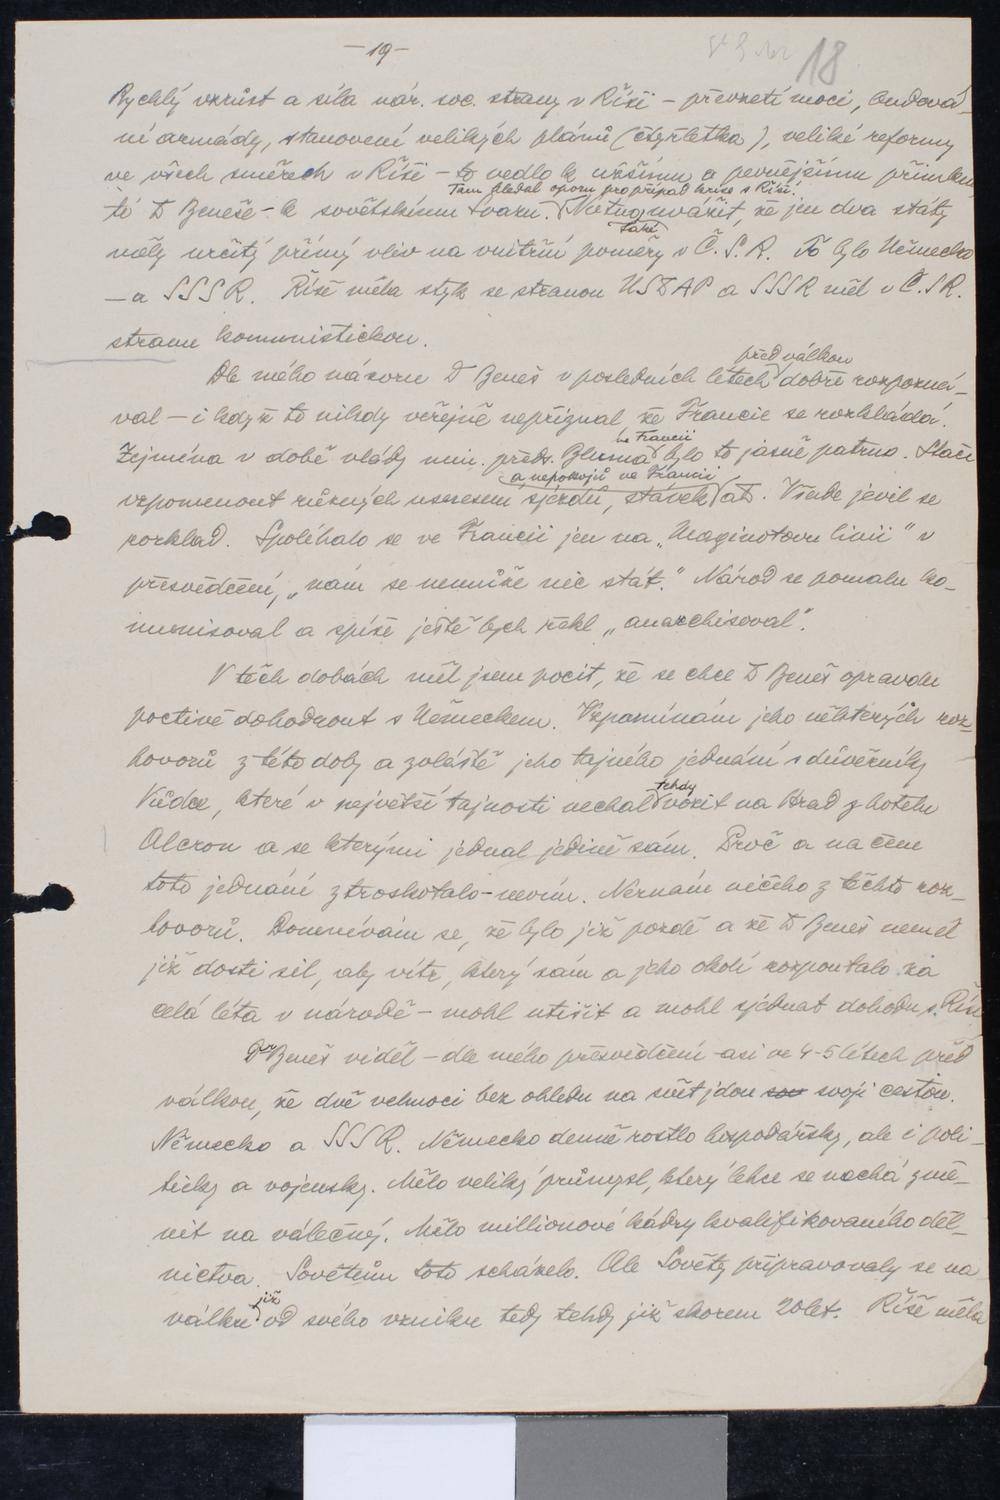 —19—
18
Rychlý vzrůst a síla nár. soc. strany v Říši – převzetí moci, budová-
ní armády, stanovení velikých plánů (čtyřletka), veliké reformy
ve všech směrech v Říši – to vedlo k užšímu a pevnějšímu přimknu
tí Dr Beneše – k sovětskému Svazu. Tam hledal oporu pro případ krise s Říší. Nutno uvážit, že jen dva státy
měly určitý přímý vliv na vnitřní poměry také v Č.S.R. To bylo Německo
– a SSSR. Říše měla styk se stranou NSDAP a SSSR měl v Č.S.R.
stranu komunistickou.
Dle mého názoru Dr Beneš v posledních létech před válkou dobře rozpozná-
val – i když to nikdy veřejně nepřiznal, že Francie se rozkládá.
Zejména v době vlády min. předs. Bluma ve Francii bylo to jasně patrno. Stačí
vzpomenout různých usnesení sjezdů, stávek a nepokojů ve Francii atd. Všude jevil se
rozklad. Spoléhalo se ve Francii jen na „Maginotovu linii" v
přesvědčení, „nám se nemůže nic stát." Národ se pomalu ko-
munisoval a spíše ještě bych řekl „anarchisoval".
V těch dobách měl jsem pocit, že se chce Dr Beneš opravdu
poctivě dohodnout s Německem. Vzpomínám jeho některých roz-
hovorů z této doby a zvláště jeho tajného jednání s důvěrníky
Vůdce, které v největší tajnosti nechal tehdy vozit na Hrad z hotelu
Alcron a se kterými jednal jedině sám. Proč a na čem
toto jednání ztroskotalo – nevím. Neznám ničeho z těchto roz-
hovorů. Domnívám se, že bylo již pozdě a že Dr Beneš neměl
již dosti sil, aby vítr, který sám a jeho okolí rozpoutalo za
celá léta v národě – mohl utišit a mohl sjednat dohodu s Říší
Dr Beneš viděl – dle mého přesvědčení – asi ve 4-5 létech před
válkou, že dvě velmoci bez ohledu na svět jdou svojí cestou.
Německo a SSSR. Německo denně rostlo hospodářsky, ale i poli-
ticky a vojensky. Mělo veliký průmysl, který lehce se nechá změ-
nit na válečný. Mělo millionové kádry kvalifikovaného děl-
nictva. Sovětům toto scházelo. Ale Sověty připravovaly se na
válku již od svého vzniku tedy tehdy již skorem 20 let. Říše měla